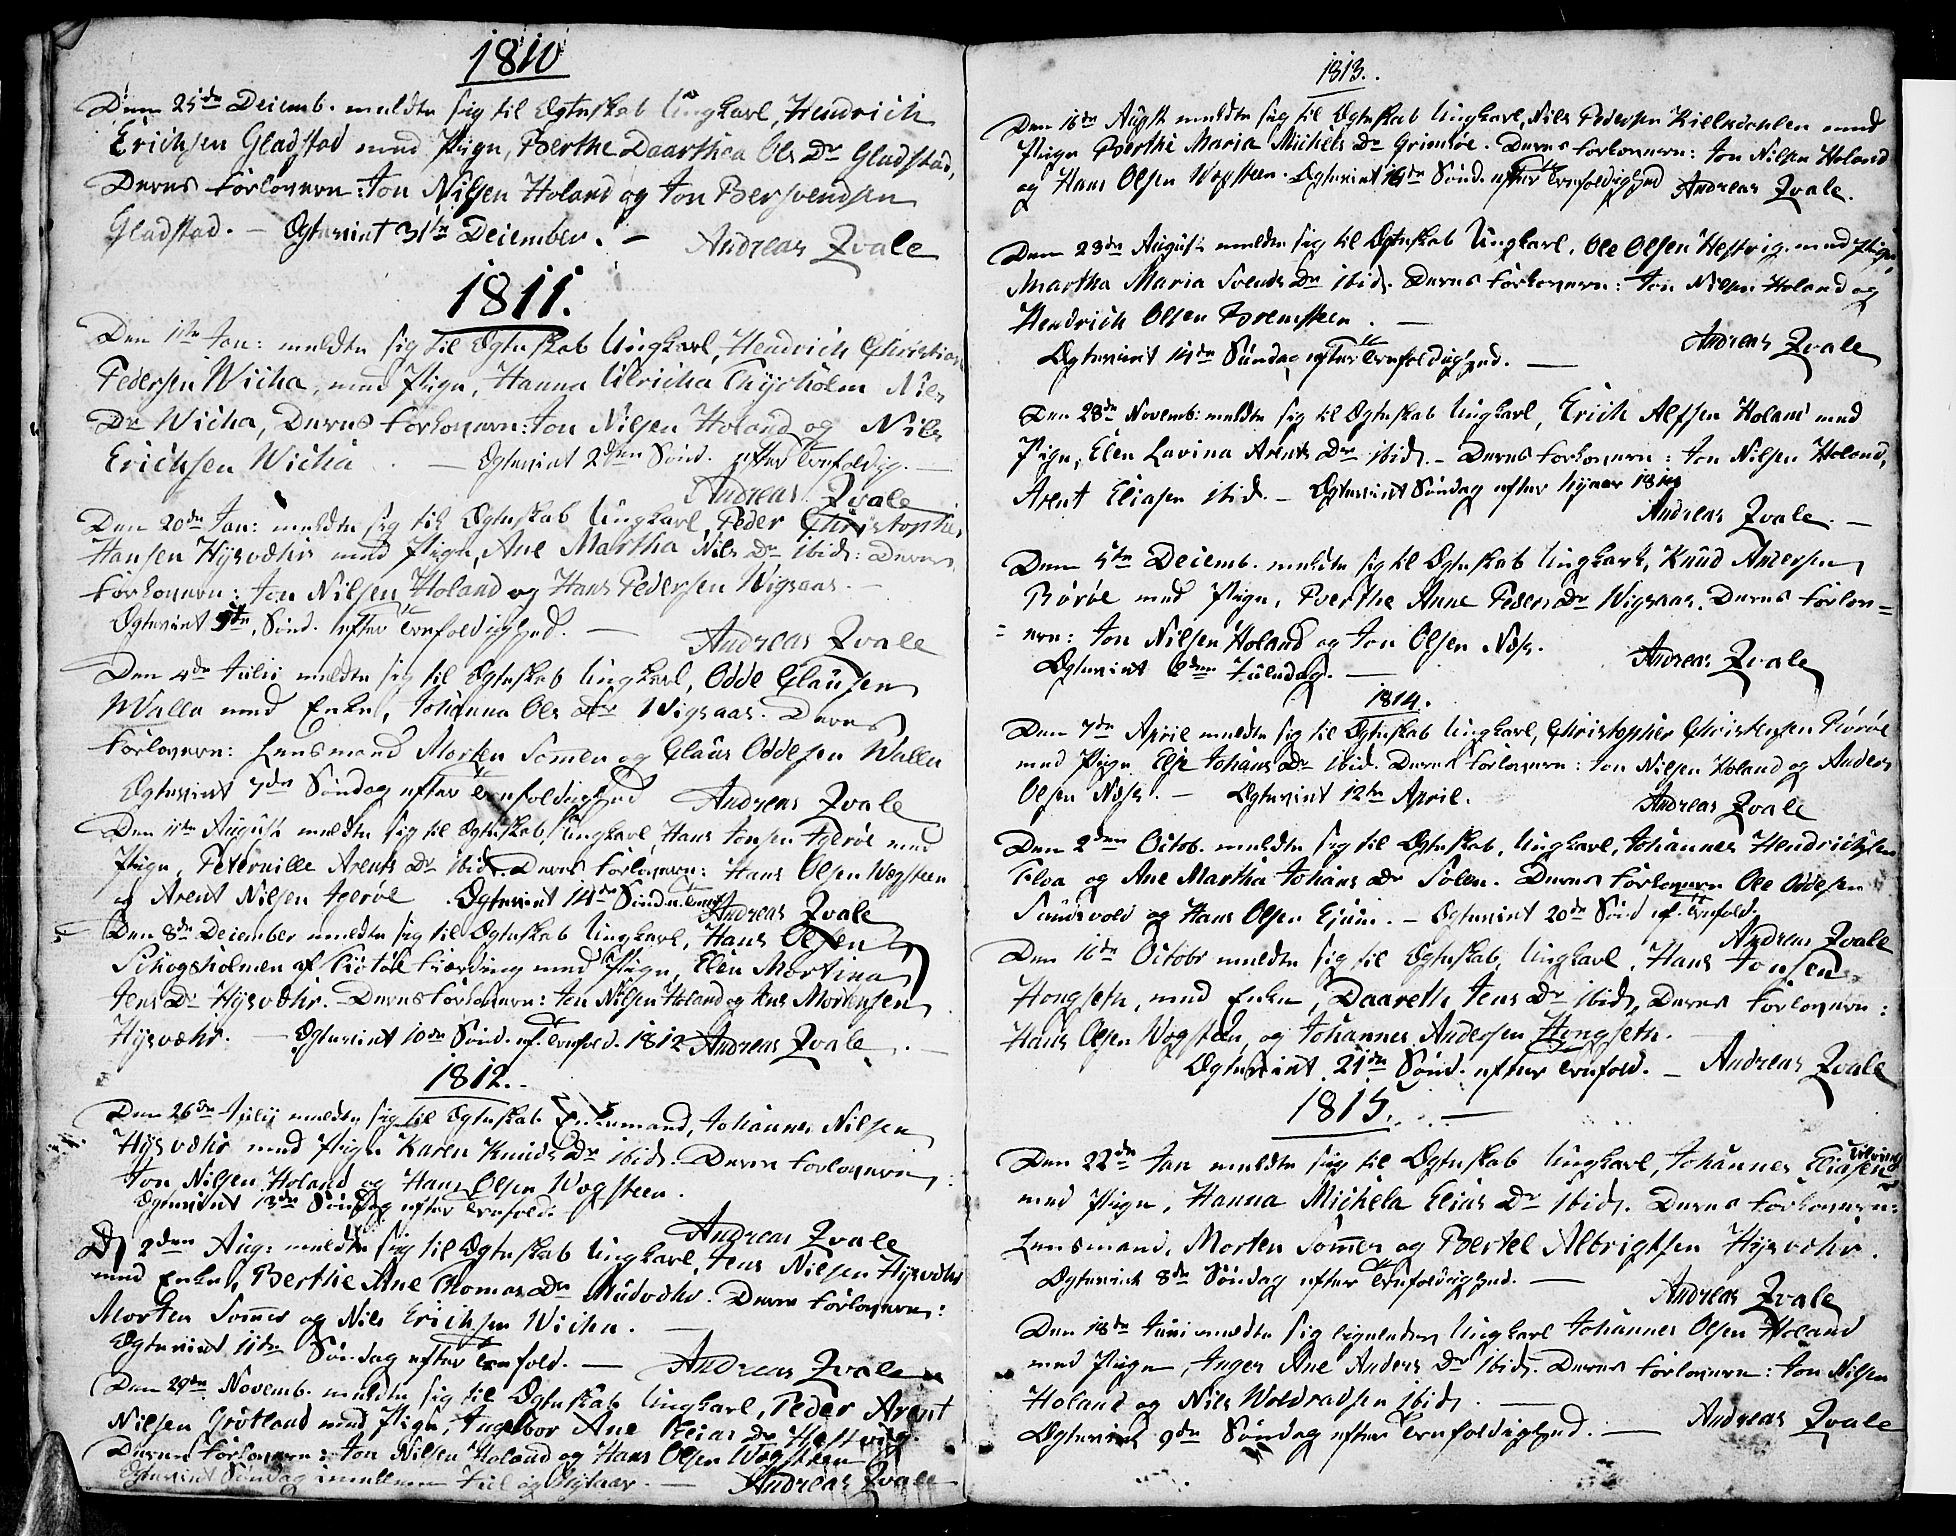 1810
Den 25de Decemb. meldte sig til Ægteskab Ungkarl, Hendrich
Erichsen Gladstad med Pigen, Berthe Daarthea Ols Dr Gladstad,
Deres Forlovern: Jon Nilsen Holand og Jon Bersvendsen
Gladstad. — Ægteviet 31te December. — Andreas Qvale
1811.
Den 11te Jan: meldte sig til Ægteskab Ungkarl, Hendrich Christian
Pedersen Wicha, med Pigen, Hanna Ulricha Thÿrholm Nils
Dr Wicha, Deres Forlovern: Jon Nilsen Holand og Nils
Erichsen Wicha. — Ægteviet 2den Sønd. efter Trefoldig. —
Andreas Qvale
Den 20de Jan: meldte sig til Ægteskab Ungkarl, Peder Christopher
Hansen Hÿsvæhr med Pigen, Ane Martha Nils Dr ibid: Deres
Forlovern: Jon Nilsen Holand og Hans Pedersen Wigsaas. —
Ægteviet 5te Sønd. efter Trefoldighed. — Andreas Qvale
Den 4de Julii meldte sig til Ægteskab Ungkarl, Odde Clausen
Walle med Enke, Johanna Ols Dr Wigsaas. Deres
Forlovern: Lensmand Morten Sommer og Claus Oddesen Walle
Ægteviet 7de Søndag efter Trefoldighed Andreas Qvale
Den 11te August meldte sig til Ægteskab, Ungkarl, Hans Jonsen Igerøe med
Pigen, Peternille Arents Dr ibid. Deres Forlovern: Hans Olsen Wogsteen
og Arent Nilsen Igerøe. Ægteviet 14de Sønd. e. Trenf
Andreas Qvale
Den 8de December meldte sig til Ægteskab Ungkarl, Hans Olsen
Schogsholmen af Fierding med Pigen, Elen Martina
Jens Dr Hÿsvæhr. — Deres Forlovern: Jon Nilsen Holand og Jens Mortensen
Hÿsvæhr. — Ægteviet 10de Sønd. ef. Trefold. 1812 Andreas Qvale. —
1812. -
Den 26de Julij meldte sig til Ægteskab Enkemand, Johannes Nilsen
Hÿsvæhr med Pigen Karen Knuds Dr ibid. Deres Forlovern:
Jon Nilsen Holand og Hans Olsen Wogsteen.
Ægteviet 13de Søndag efter Trefold.
Andreas Qvale
D. 2den Aug: meldte sig til Ægteskab Ungkarl, Jens Nilsen Hÿsvæhr
med Enken, Berthe Ane Thomas Dr Mudvæhr. Deres Forlovern:
Morten Sommer og Nils Erichsen Wicha. —
Ægteviet 11te Søndag efter Trefold. — Andreas Qvale
Den 29de Novemb. meldte sig til Ægteskab Ungkarl, Peder Arent
Nilsen Grøtland med Pigen, Ingebor Ane Elias Dr Hestvig.
Deres Forlovern: Jon Nilsen Holand og Hans Olsen Wogsteen
Ægteviet Søndag imellem Juel og Nÿtaar. — Andreas Qvale
1813.
Den 16de Augst meldte sig til Ægteskab Ungkarl, Nils Pedersen Killedahlen med
Pigen Berthe Maria Michels Dr Grimsøe. Deres Forlovern: Jon Nilsen Holand
og Hans Olsen Wogsteen. Ægteviet 16de Sønd. efter Trefoldighed Andreas Qvale.
Den 23de August meldte sig til Ægteskab Ungkarl, Ole Olsen Hestvig med Pigen
Martha Maria Svends Dr ibid. Deres Forlovern: Jon Nilsen Holand og
Hendrich Olsen Bremsteen. —
Andreas Qvale
Ægteviet 14de Søndag efter Trefoldighed. —
Den 28de Novemb: meldte sig til Ægteskab Ungkarl, Erich Alfsen Holand med
Pigen, Elen Lavina Arents Dr ibid. — Deres Forlovern: Jon Nilsen Holand,
Arent Eliasen ibid. — Ægteviet Søndag efter Nÿaar 1814
Andreas Qvale. —
Den 5te Decemb. meldte sig til Ægteskab Ungkarl, Knud Andersen
Rørøe med Pigen, Berthe Anne Peders Dr Wigsaas. Deres Forlov=
= ern: Jon Nilsen Holand og Jon Olsen Næs.
Ægteviet 2den Juledag. — Andreas Qvale
1814.
Den 7de April meldte sig til Ægteskab Ungkarl, Christopher Christensen Rørøe
med Pigen Else Johans Dr ibid. Deres Forlovern: Jon Nilsen Holand og Anders
Olsen Næs. — Ægteviet 12te April. Andreas Qvale
Den 2den Octob. meldte sig til Ægteskab, Ungkarl, Johannes Hendrichsen
Floa og Ane Martha Johans Dr Solem. Deres Forlovern Ole Oddesen
Sundsvold og Hans Olsen. — Ægteviet 20de Sønd ef. Trefold.
Andreas Qvale
Den 16de Octobr meldte sig til Ægteskab, Ungkarl, Hans Jonsen
Hongseth, med Enken, Daareth Jens Dr ibid. Deres Forlovern:
Hans Olsen Wogsteen, og Johannes Andersen Hongseth.
Ægteviet 21de Sønd. efter Trefold. — Andreas Qvale
1815. —
Den 22de Jan meldte sig til Ægteskab Ungkarl, Johannes Eliasen
med Pigen, Hanna Michela Elias Dr ibid. Deres Forlovern:
Lensmand, Morten Sommer og Bertel Albrigtsen Hÿsvæhr.
Ægteviet 8de Søndag efter Trefoldighed. —
Andreas Qvale
Den 18de Juni meldte sig ligeledes Ungkarl Johannes Olsen Holand
med Pigen, Inger Ane Anders Dr ibid. Deres Forlovern: Jon Nilsen
Holand og Nils Woldradsen ibid. —
Ægteviet 9de Søndag efter Trefoldighed. — Andreas Qvale